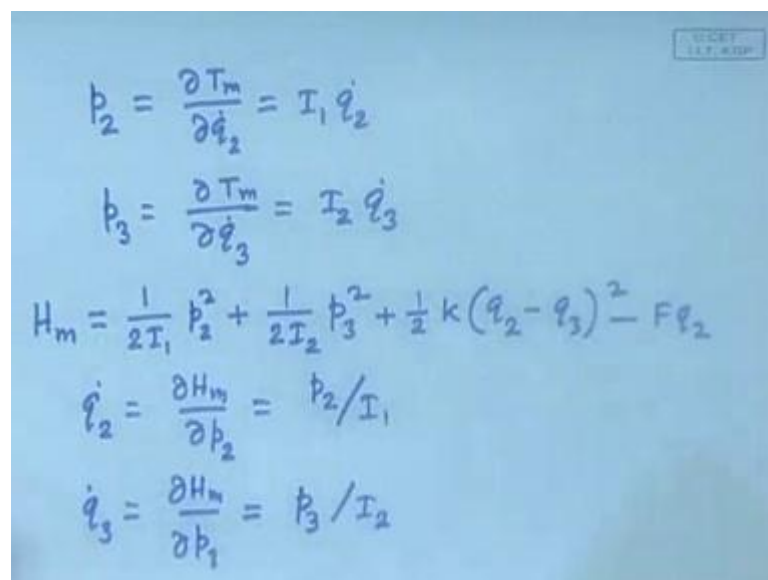 p₂ = ∂Tm/∂q̇₂ = I₁ q̇₂
p₃ = ∂Tm/∂q̇₃ = I₂ q̇₃
Hm = 1/2I₁ p₂² + 1/2I₂ p₃² + ½ K(q₂ - q₃)² - Fq₂
q̇₂ = ∂Hm/∂p₂ = p₂/I₁
q̇₃ = ∂Hm/∂p₁ = p₃/I₂